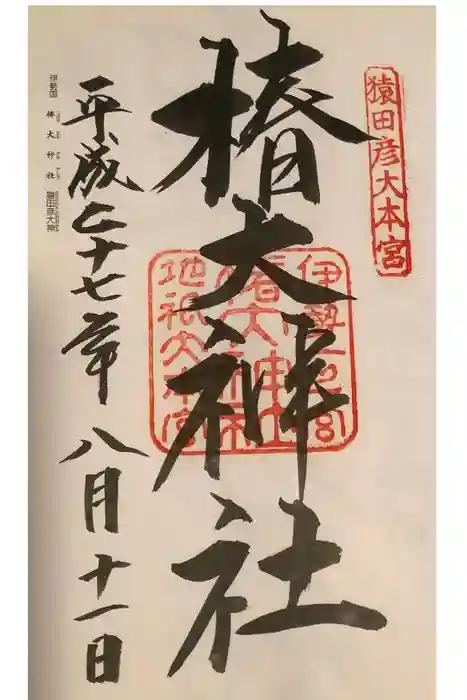 猿田彦大本宮
椿大神社
伊勢一之宮
椿大神社
地祇大本宮
平成二十七年 八月十一日
伊勢国 椿大神社 猿田彦大神